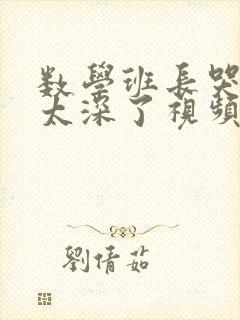 数學班長哭
太深了視頻
劉倩茹